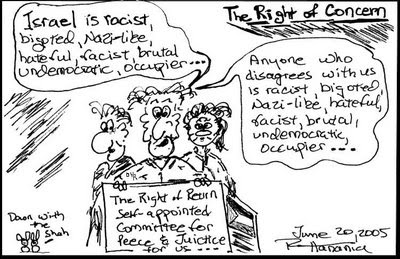 The Right of Concern
Israel is racist,
bigoted, Nazi-like,
hateful, facist, brutal
undemocratic, occupier ...
Anyone who
disagrees with us
is racist, bigoted,
Nazi-like, hateful,
facist, brutal,
undemocratic,
occupier ...
The Right of Return
Self-appointed
Committee for
Peece & Juictice
for us ...
Down with
the
Shah
June 20, 2005
R Hanania